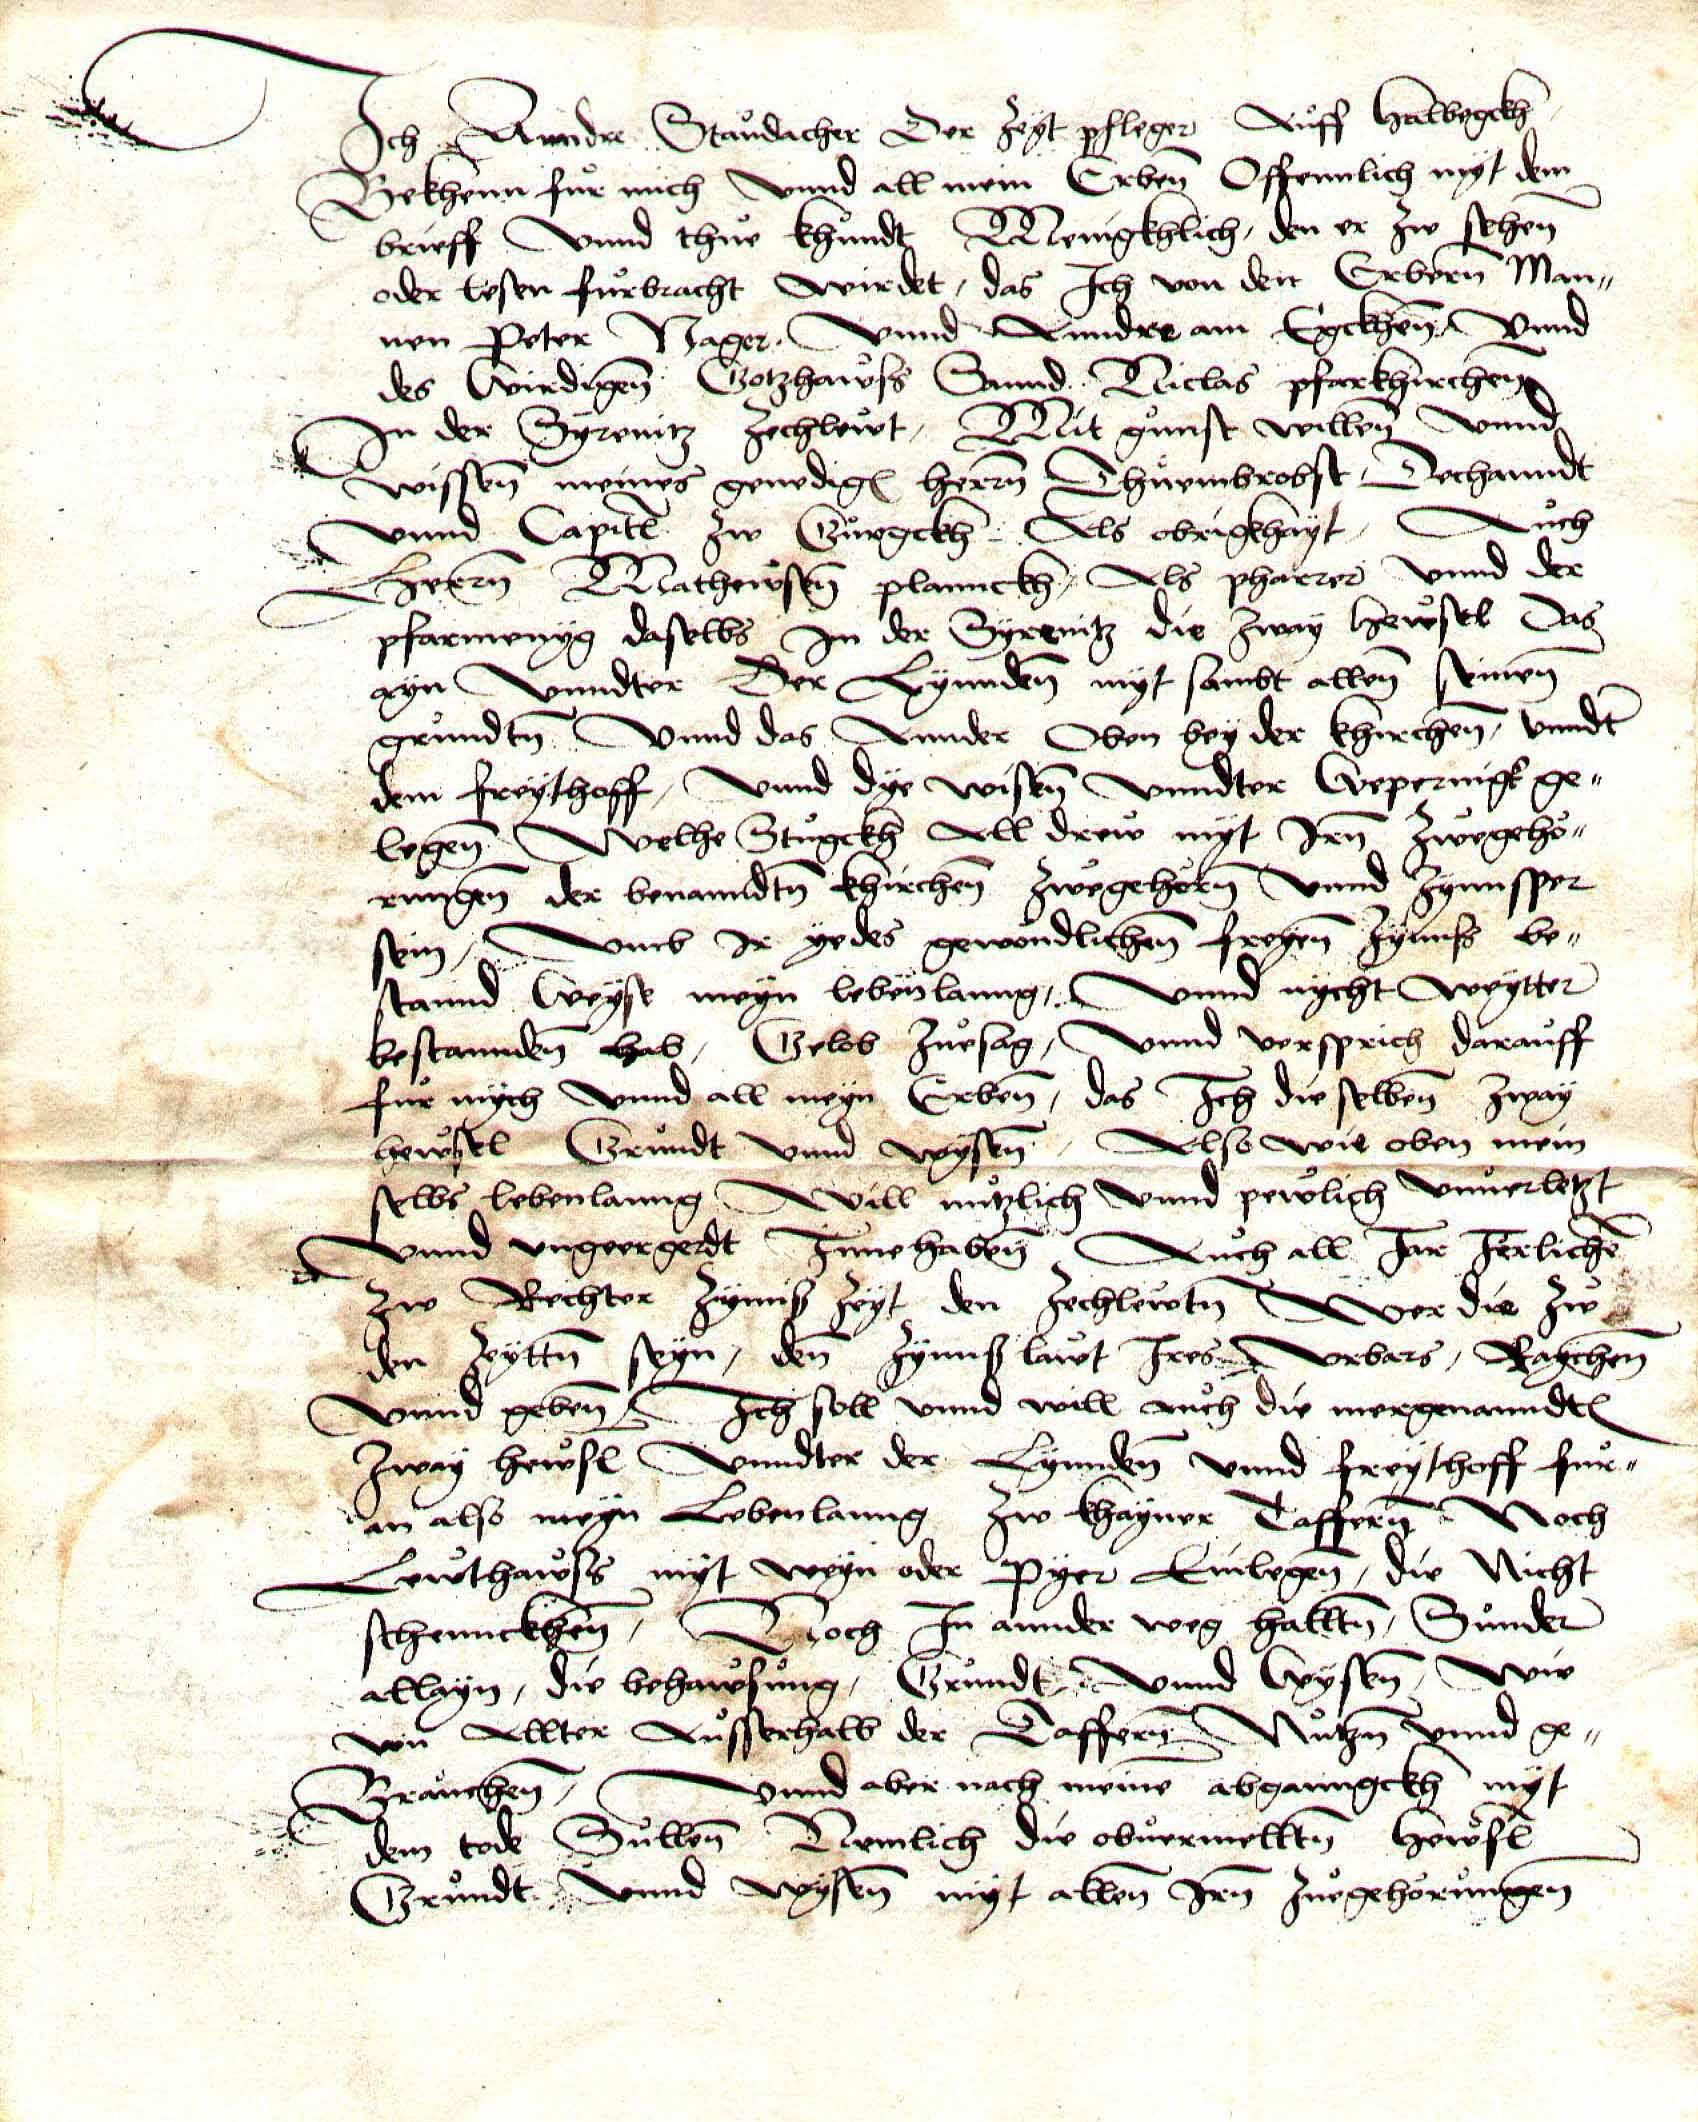 Ich Anndre Staůdacher Der Zeyt pfleger Aůff Halbegckh
Bekhenn fůr mich vnnd all mein Erbeñ Offennlich myt dem
brieff Vnnd thůe khůndt Menigkhlich, den er zw seheñ
oder lesen fůrbracht wirdet, das Ich von den Erberñ Man„
nen Peter Nager. Vnnd Anndre am Egckheñ, Vnnd
des wirdigeñ Gotzhawss Sannd Niclas pfarkhircheñ
In der Syrnitz Zechlewt, Mit gůnst willeñ vnnd
wisseñ meines genedigen herrñ Thůembrobst, Dechanndt
vnnd Capitl zw Gůrgckh Als obrigkhayt, Aůch
Herrñ Mathewseñ plannckh, Als pharrer vnnd der
pfarmenyg daselbs In der Syrenitz die zway hewsel Das
ayn Vnndter Der Lynndeñ myt sambt alleñ seineñ
grůndtñ Vnnd das Annder Oben bey der khircheñ, vnndt
dem freythoff, Vnnd dye wiseñ Vnndter Wepernigk ge„
legeñ Welhe Stůgckh All drew myt Irñ zwgehö„
rungeñ der benanndtñ khircheñ zwgehörñ Vnnd zynnsper
sein, Vmb Ir yedes gewöndlicheñ freyeñ zynnss be„
stannd Weyse meyn lebeñlanng, Vnnd nycht weytter
bestanndeñ hab, Gelob Zůesag, Vnnd versprich daraůff
fůr mych vnnd all meyn Erbeñ, das Ich die selbeñ zway
hewsel Grůndt vnnd wyseñ, Also wie oben mein
selbs lebenlanng Will nůtzlich Vnnd pewlich vnůerletzt
Vnnd vngeergerdt Innehabeñ Aůch all Jar Jerlicheñ
zw Rechter zynnß zeyt den zechlewtñ Wer die zw
den zeyttñ seyn, deñ zynnß lawt Ires Vrbars, Raycheñ
Vnnd gebeñ, Ich soll vnnd will aůch die mergenanndten
zway hewsl Vnndter der Lynndeñ vnnd freythoff fůr„
an also meyn Lebenlanng zw khayner Tafferñ Noch
Lewthawss myt weyn oder Pyer Einlegeñ, die Nicht
schennckheñ, Noch In annder weg halltñ, Sůnder
allayn, die behawsůng, Grůndt Vnnd Wyseñ, Wie
von Allter Aůsserhalb der Tafferñ Nůtzñ vnnd ge„
Braůcheñ, Vnnd aber nach meine abganngckh myt
dem tode Sůlleñ Nemlich die obůermelltñ hewsl
Grůndt Vnnd wyseñ myt alleñ Irñ zůegehörůngeñ